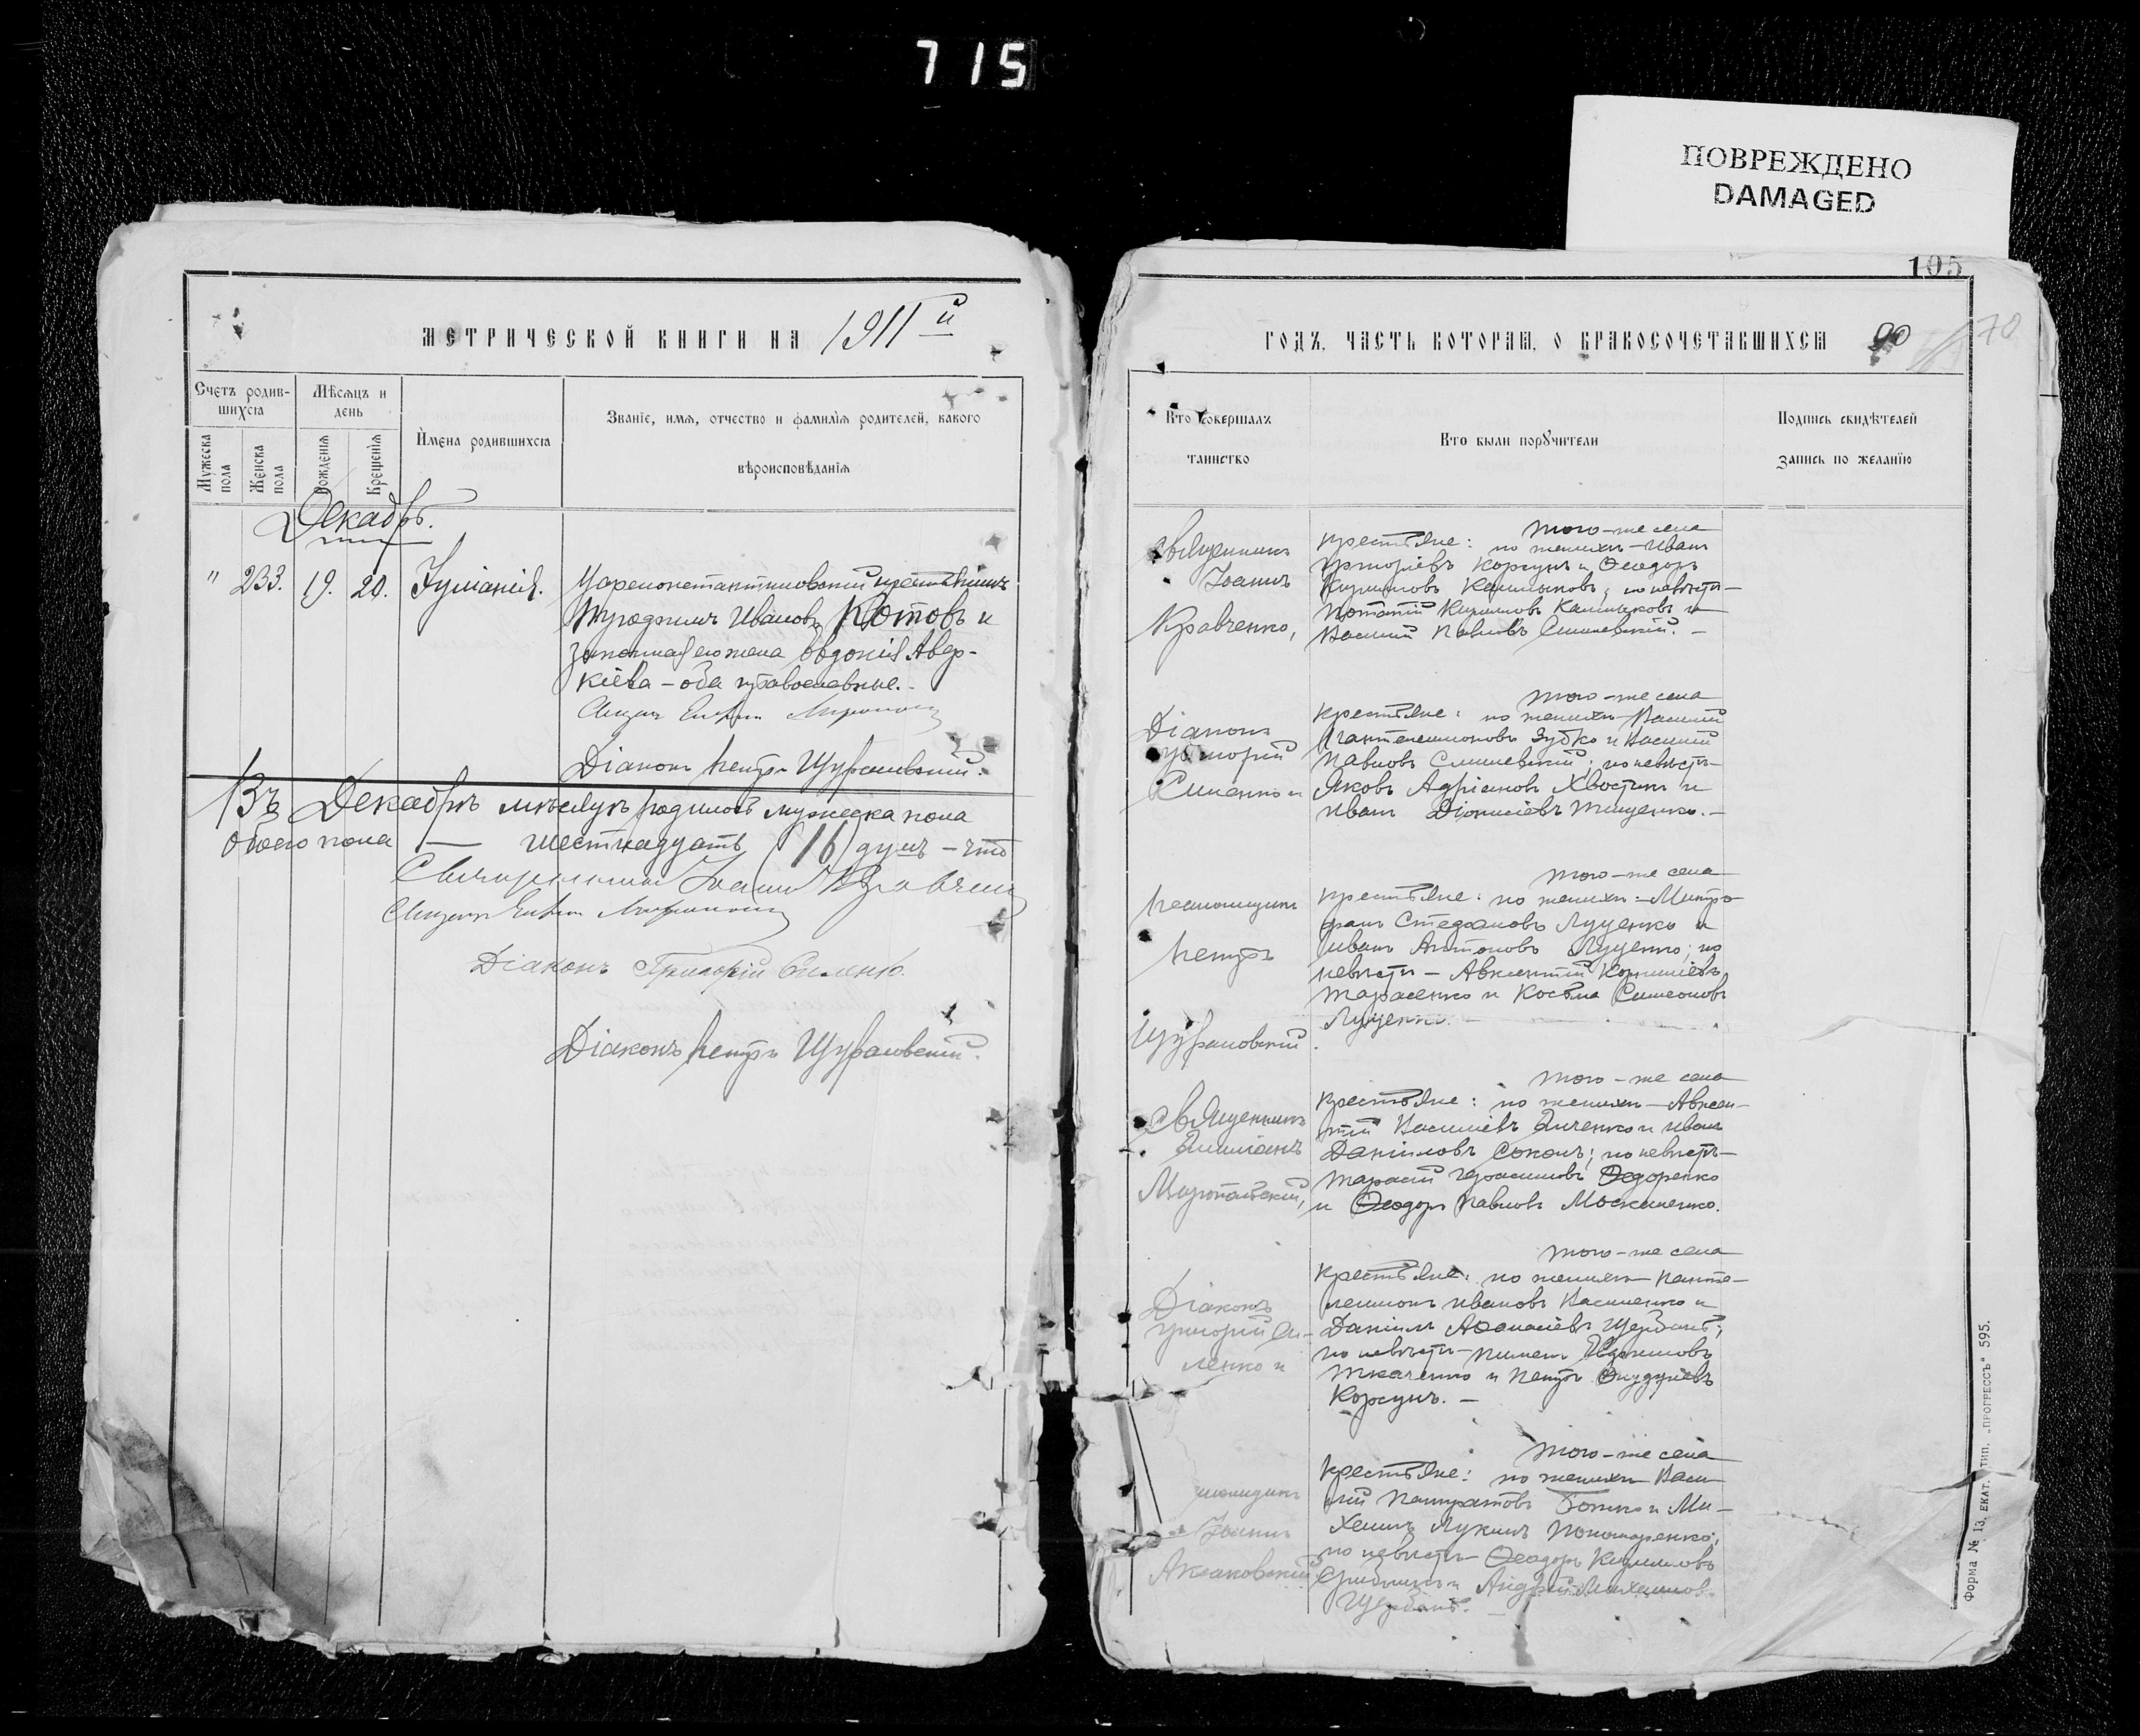 715
ПОВРЕЖДЕНО
DAMAGED
МЕТРИЧЕСКОЙ КНИГИ НА 1911й
Счетъ родив-
шихся
Мѣсяцъ и
день
Мужеска
пола
Женска
пола
Рожденія
Крещенія
Имена родившихся
Званіе, имя, отчество и фамилія родителей, какого
вѣроисповѣданія
Декабрь.
" 233. 19. 20. Іуліанія.
Цареконстантиновскій крестьянинъ
Иванов Котовъ и
законная его жена Евдокія Авер-
кіева – оба православные.
Діаконъ Петръ Щурановскій.
Въ Декабрѣ мѣсяцѣ родилось мужеска пола
обоего пола — шестнадцать (16) душъ – что
Священникъ Іоаннъ Кравченко
Діаконъ Григорій Силенко.
Діаконъ Петръ Щурановскій.
105
ГОДЪ, ЧАСТЬ ВТОРАЯ, О БРАКОСОЧЕТАВШИХСЯ 90
70
Кто совершалъ
таинство
Кто были поручители
Подпись свидѣтелей
запись по желанію
Священникъ
Іоаннъ
Кравченко,
того-же села
крестьяне: по женихѣ – Иванъ
Григоріевъ Корсунъ и Ѳеодоръ
Кирилловъ Калмыковъ; по невѣстѣ –
Кирилловъ Калмыковъ и
Василій Павловъ
Діаконъ
Григорій
Силенко и
того-же села
крестьяне: по женихѣ – Василій
Пантелеимоновъ Зубко и Василій
Павловъ ; по невѣстѣ –
Яковъ Адріановъ Хвостикъ и
Иванъ Діонисіевъ Тищенко. –
псаломщикъ
Петръ
Щурановскій.
того-же села
крестьяне: по женихѣ: – Митро-
фанъ Стефановъ Луценко и
Иванъ Антоновъ Луценко; по
невѣстѣ – Авксентій Корниліевъ
Тарасенко и Косьма Симеоновъ
Луценко. –
Священникъ
того-же села
крестьяне: по женихѣ – Авксен-
тій Василіевъ и Иванъ
Даніиловъ Соколъ; по невѣстѣ –
Тарасій Герасимовъ Ѳедоренко
и Ѳеодоръ Павловъ Москаленко.
Діаконъ
Григорій Си-
ленко и
того-же села
крестьяне: по женихѣ – Панте-
леимонъ Ивановъ Василенко и
Даніилъ Аѳанасіевъ Щербакъ;
по невѣстѣ – Пименъ Евдокимовъ
Ткаченко и Петръ
Корсунъ. –
Іоаннъ
Аксаковскій
того-же села
крестьяне: по женихѣ – Васи-
лій Панкратовъ Божко и Ми-
хаилъ Лукинъ Пономаренко;
по невѣстѣ – Ѳеодоръ Кирилловъ
и Андрей Михаиловъ
Щербакъ. –
Форма № 13, ЕКАТ. ТИП. „ПРОГРЕССЪ“ 595.